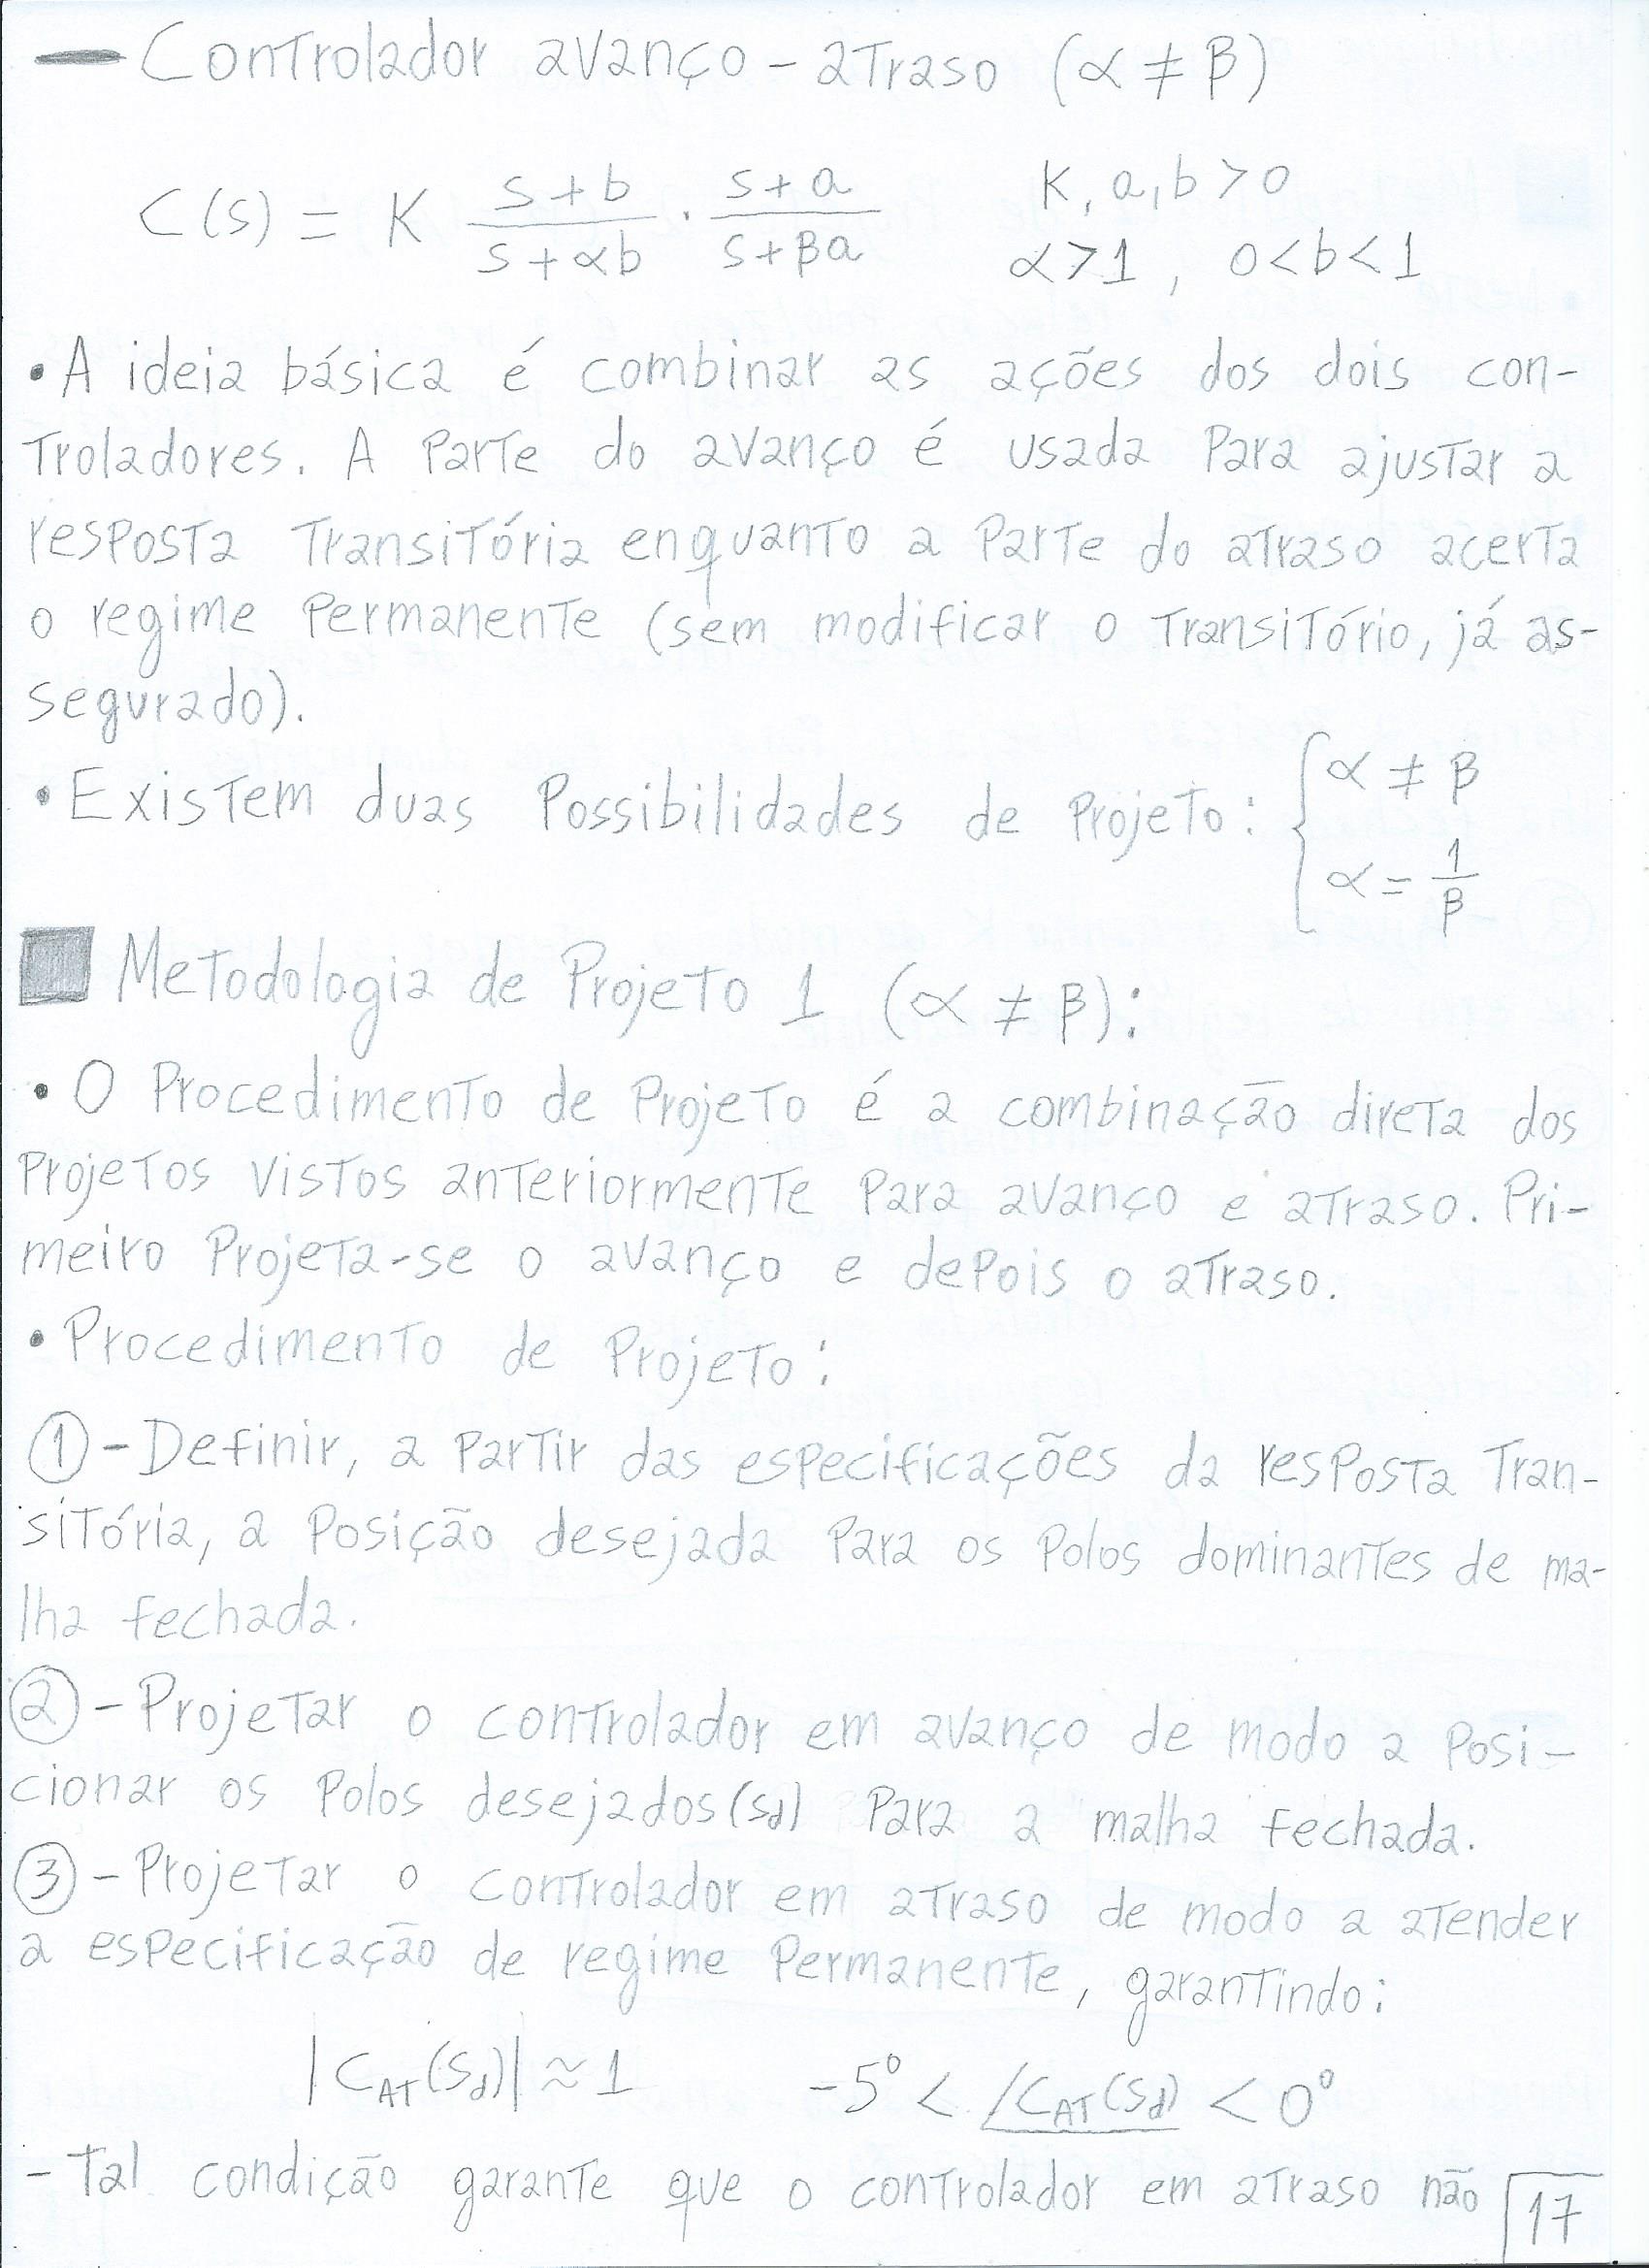 — Controlador avanço - atraso (α ≠ β)
C(s) = K (s+b)/(s+αb) · (s+a)/(s+βa)    K, a, b > 0
α > 1, 0 < b < 1
• A ideia básica é combinar as ações dos dois con-
troladores. A parte do avanço é usada para ajustar a
resposta transitória enquanto a parte do atraso acerta
o regime permanente (sem modificar o transitório, já as-
segurado).
• Existem duas possibilidades de projeto: { α ≠ β
α = 1/β
Metodologia de Projeto 1 (α ≠ β):
• O procedimento de projeto é a combinação direta dos
projetos vistos anteriormente para avanço e atraso. Pri-
meiro projeta-se o avanço e depois o atraso.
• Procedimento de projeto:
① - Definir, a partir das especificações da resposta tran-
sitória, a posição desejada para os polos dominantes de ma-
lha fechada.
② - Projetar o controlador em avanço de modo a posi-
cionar os polos desejados (sd) para a malha fechada.
③ - Projetar o controlador em atraso de modo a atender
a especificação de regime permanente, garantindo:
|C_AT(sd)| ≈ 1    -5° < ∠C_AT(sd) < 0°
- Tal condição garante que o controlador em atraso não
17